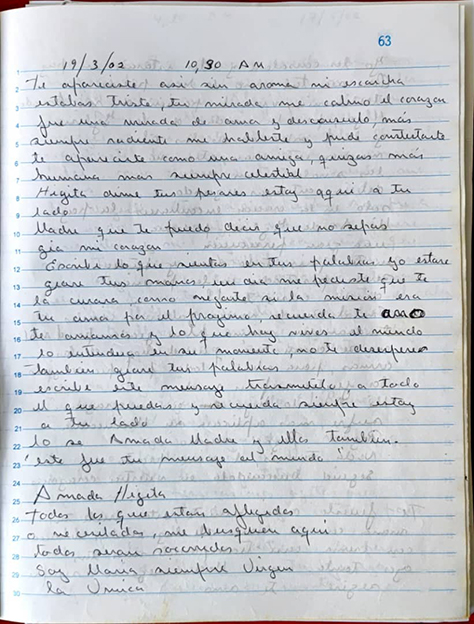 63
19/3/02 10,30 AM
Te apareciste asi sin aroma ni escarcha
estabas triste, tu mirada me calmo el corazon
fue una mirada de amor y desconsuelo más
siempre radiente me hablaste y pude contestarte
te apareciste como una amiga, quizas más
humana más siempre celestial
Hegita dime tus pesares estoy aqui a tu
lado
Madre que te puedo decir que no sepas
gia mi corazon
Escribe lo que sientas en tus palabras yo estare
giare tus manos un dia me pediste que te
la curara, como negarte si la mision era
tu ama por el progimo recuerda te amo
te amamos y lo que hoy vives el mundo
lo entendera en su momento, no te desesperes
tambien giare tus palabras
escribe este mensaje trasmitelo a todo
el que puedas y recuerda siempre estoy
a tu lado
lo se Amada Madre y ellos tambien.
este fue tu mensaje al mundo
Amada Hegita
todos los que estan afligidos
o necesitados, me busquen aqui
todos seran socorridos
Soy Maria siempre Virgen
la Unica